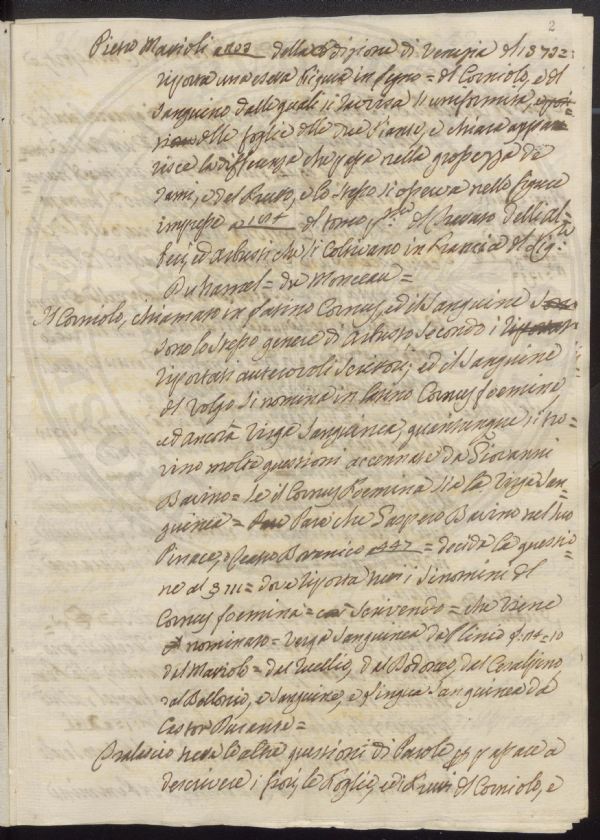 2
Pietro Matioli a 203 della Edizione di Venezia del 1573 =
riporta una esata Figura in legno = del Corniolo, e del
Sanguino dalle quali si ravvisa l'uniformità,
delle foglie delle due Piante, e chiara
risce la differenza che passa nella grossezza de
rami, e del Frutto, e lo stesso si osserva nelle Figure
impresse a 184 del tomo p.mo del Trattato dell'Al-
beri, ed Arbusti che si Coltivano in Francia del Sig.r
Du Hamel = du Monceau =
Il Corniolo, chiamato in latino Cornus, ed il Sanguine
sono lo stesso genere di Arbusto secondo i
riportati autorevoli Scrittori; ed il Sanguine
dal Volgo si nomina in latino Cornus foemina
ed ancora Virga Sanguinea, quantunque si tro-
vino molte questioni accennate da Giovanni
Bavino = se il Cornus Foemina sia la Virga San-
guinea = Pare che Gaspero Bavino nel suo
Pinace, o Teatro Botanico a 447 = decida la questio-
ne al § III = dove riporta i sinonimi del
Cornus foemina = scrivendo = che viene
nominato = Verga Sanguinea da Plinio
dal Matiolo = dal Ruellio, dal Dodoneo, dal Cesalpino,
dal Bellonio, e Sanguine, e Sanguinea da
Castor Durante =
Tralascio tutte le altre questioni di Parole p passare a
descrivere i fiori, le Foglie, ed i Frutti del Corniolo, e